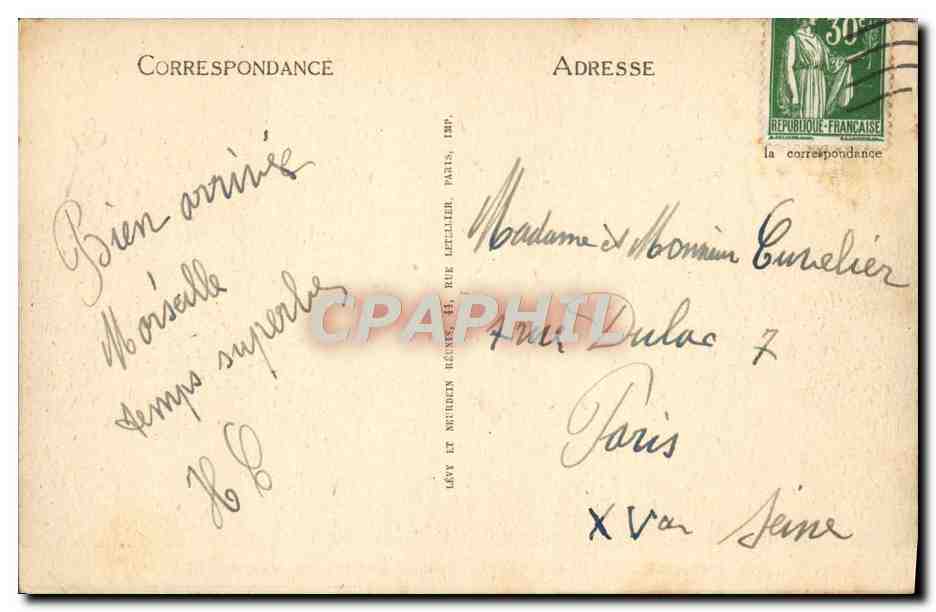 CORRESPONDANCE
ADRESSE
30 c
RÉPUBLIQUE-FRANÇAISE
la correspondance
Bien arrivés
Marseille
temps superbe
H C
LÉVY ET NEURDEIN RÉUNIS, 44, RUE LETELLIER, PARIS, IMP.
Madame et Monsieur Cuvelier
rue Dulac 7
Paris
XV ar Seine
CPAPHIL